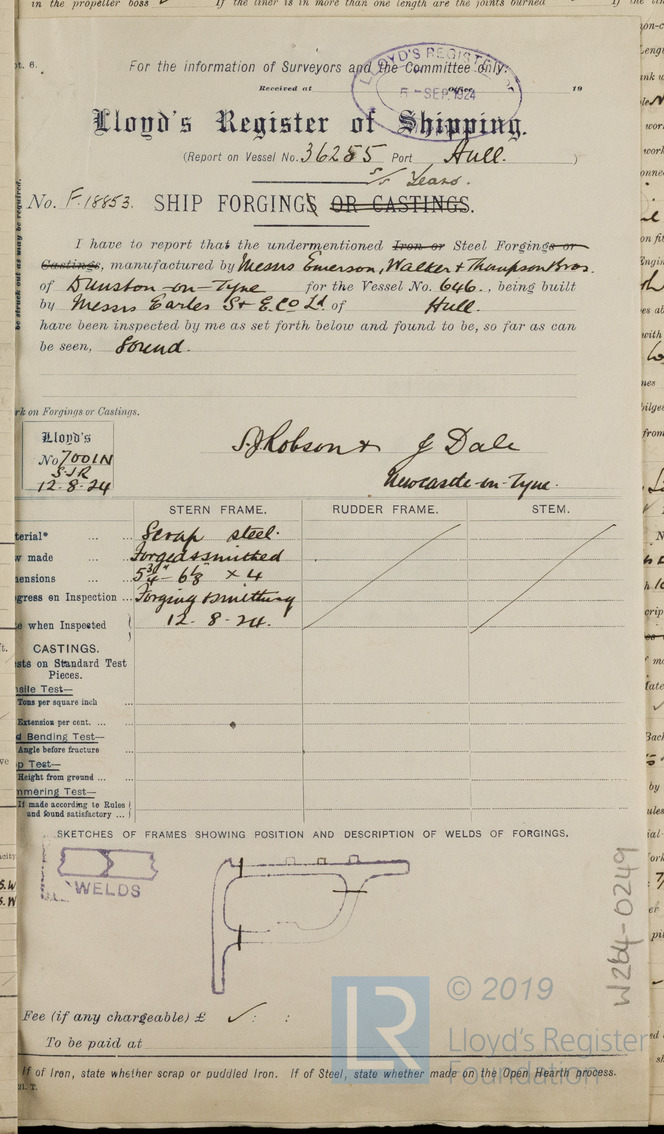 in the propeller boss ✓ If the liner is in more than one length are the joints burned
pt. 6.
For the information of Surveyors and the Committee only.
LLOYD'S REGISTER
5 - SEP. 1924
Received at 19
Lloyd's Register of Shipping.
(Report on Vessel No. 36255 Port Hull.)
Years.
No. F.18853. SHIP FORGINGS OR CASTINGS.
be struck out as may be required.
I have to report that the undermentioned Iron or Steel Forgings or
Castings, manufactured by Messrs Emerson, Walker + Thompson Bros.
of Dunston-on-Tyne for the Vessel No. 646., being built
by Messrs Earles S + E. Co Ld. of Hull.
have been inspected by me as set forth below and found to be, so far as can
be seen, Sound.
rk on Forgings or Castings.
Lloyd's
No 7001N
SJR
12-8-24
S.J. Robson + J Dale
Newcastle-on-Tyne.
STERN FRAME. RUDDER FRAME. STEM.
terial* ... ... Scrap steel.
w made ... ... Forged & smithed
ensions ... ... 5 3/4" - 6 1/8" × 4
gress on Inspection ... Forging & smithing
e when Inspected 12-8-24.
CASTINGS.
sts on Standard Test
Pieces.
nsile Test—
Tons per square inch ...
Extension per cent. ... ...
d Bending Test—
Angle before fracture ...
p Test—
Height from ground ... ...
mmering Test—
If made according to Rules
and found satisfactory ...
SKETCHES OF FRAMES SHOWING POSITION AND DESCRIPTION OF WELDS OF FORGINGS.
WELDS
W264-0249
Fee (if any chargeable) £ ✓ : :
To be paid at
If of Iron, state whether scrap or puddled Iron. If of Steel, state whether made on the Open Hearth process.
21. T.
LR
© 2019
Lloyd's Register
Foundation